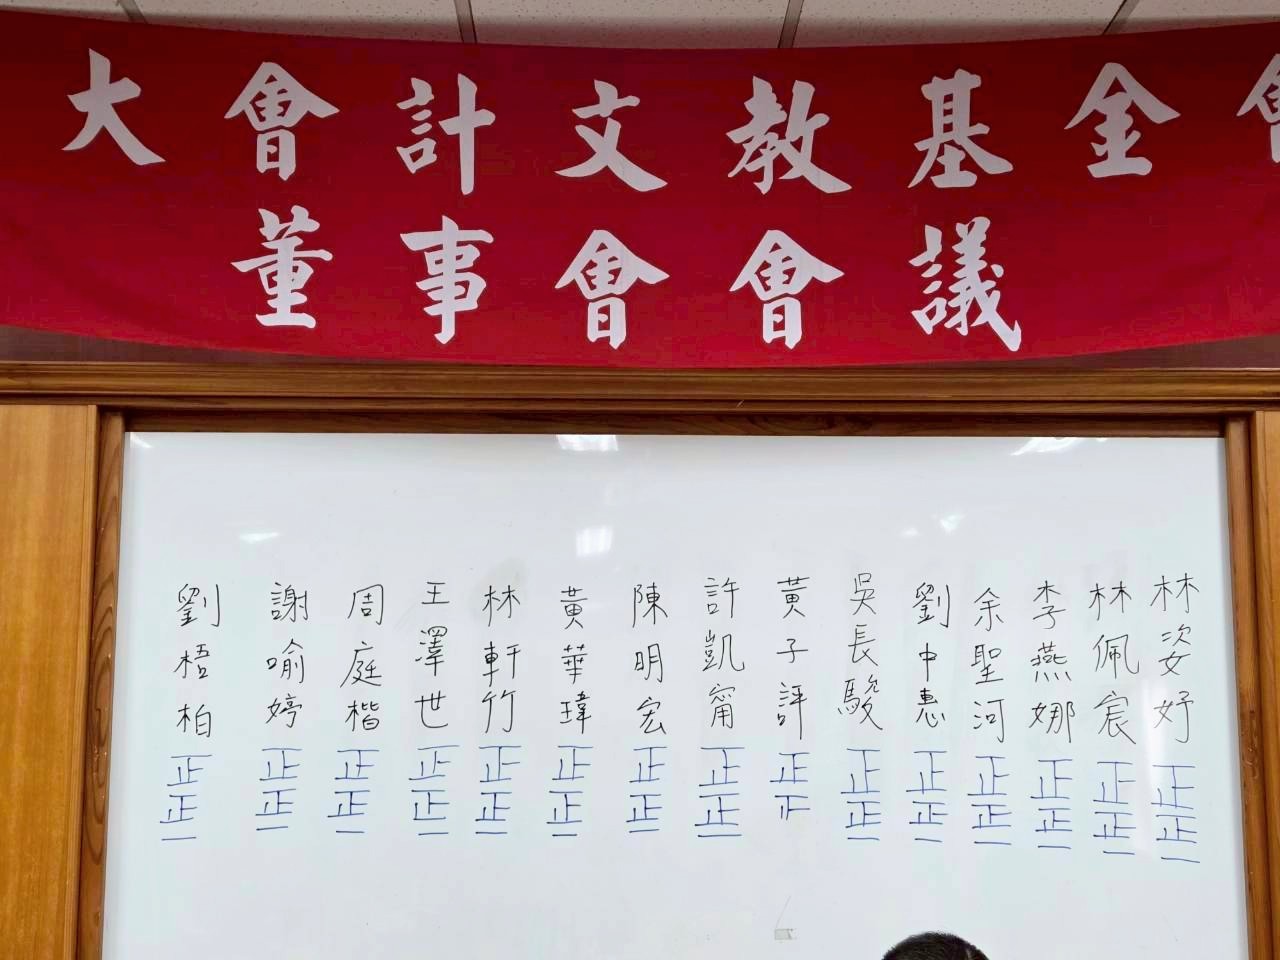 大會計文教基金會
董事會會議
林姿妤 正正一
林佩宸 正正一
李燕娜 正正一
余聖河 正正一
劉中惠 正正一
吳長駿 正正一
黃子評 正正
許凱甯 正正一
陳明宏 正正一
黃華瑋 正正一
林軒竹 正正一
王澤世 正正一
周庭楷 正正一
謝喻婷 正正一
劉梧柏 正正一